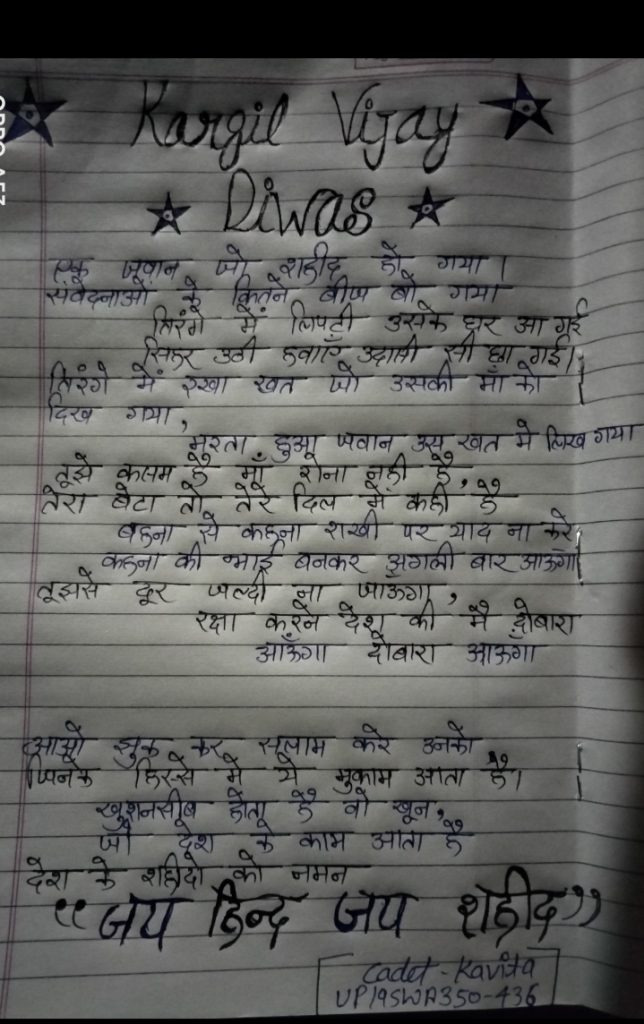 Kargil Vijay
Diwas
एक जवान जो शहीद हो गया।
संवेदनाओं के कितने बीज बो गया
तिरंगे में लिपटी उसके घर आ गई
सिहर उठी हवाएँ उदासी सी छा गई।
तिरंगे में रखा खत जो उसकी माँ को
दिख गया,
मरता हुआ जवान उस खत में लिख गया
तूझे कसम है माँ रोना नही है,
तेरा बेटा तो तेरे दिल में कही है
बहना से कहना राखी पर याद ना करे
कहना की भाई बनकर अगली बार आऊँगा।
तूझसे दूर जल्दी ना जाऊँगा,
रक्षा करने देश की मै दोबारा
आऊँगा दोबारा आऊँगा
आओ झुक कर सलाम करे उनको
जिनके हिस्से मे ये मुकाम आता है।
खुशनसीब होता है वो खून,
जो देश के काम आता है
देश के शहीदो को नमन
"जय हिन्द जय शहीद"
Cadet - Kavita
UP19SWA350-436